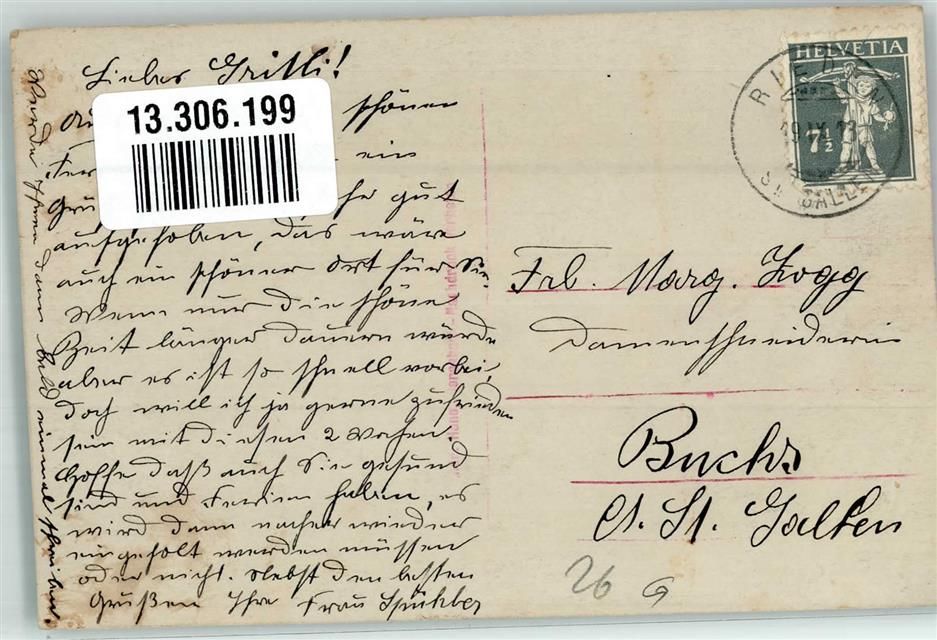 Liebes Gritli!
schönen
Fer ein
Grü he gut
aufgehoben, das wäre
auch ein schöner Ort für Sie.
Wenn nur die schöne
Zeit länger dauern würde
aber es ist so schnell vorbei,
doch will ich ja gerne zufrieden
sein mit diesen 2 Wochen.
Hoffe daß auch Sie gesund
sind und Ferien haben, es
wird dann nacher wieder
eingeholt werden müssen
oder nicht. Nebst den besten
Grüßen Ihre Frau
Werde Ihnen dann bald einmal schreiben.
13.306.199
HELVETIA
7½
Frl. Marg. Zogg
Damenschneiderin
Buchs
Ct. St. Gallen
26